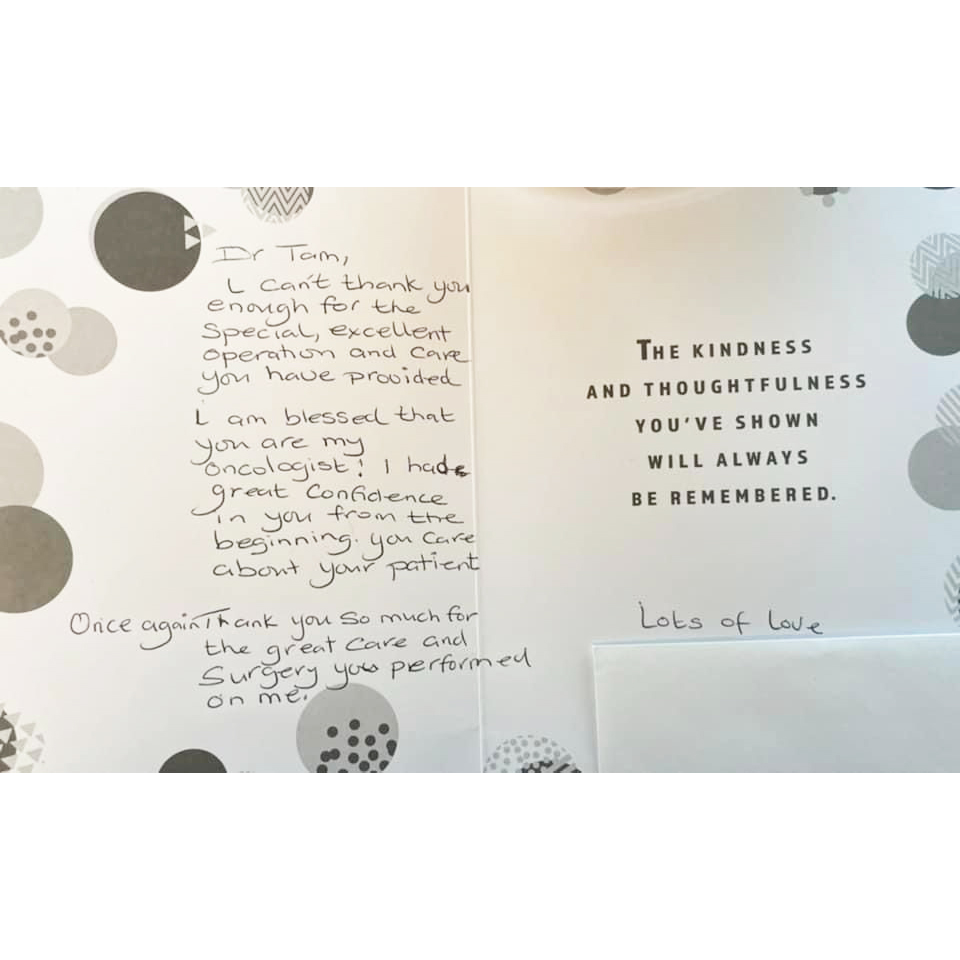 Dr Tam,
I can't thank you
enough for the
special, excellent
operation and care
you have provided
I am blessed that
you are my
oncologist! I had
great confidence
in you from the
beginning. you care
about your patient
Once again Thank you so much for
the great care and
surgery you performed
on me.
THE KINDNESS
AND THOUGHTFULNESS
YOU'VE SHOWN
WILL ALWAYS
BE REMEMBERED.
Lots of love